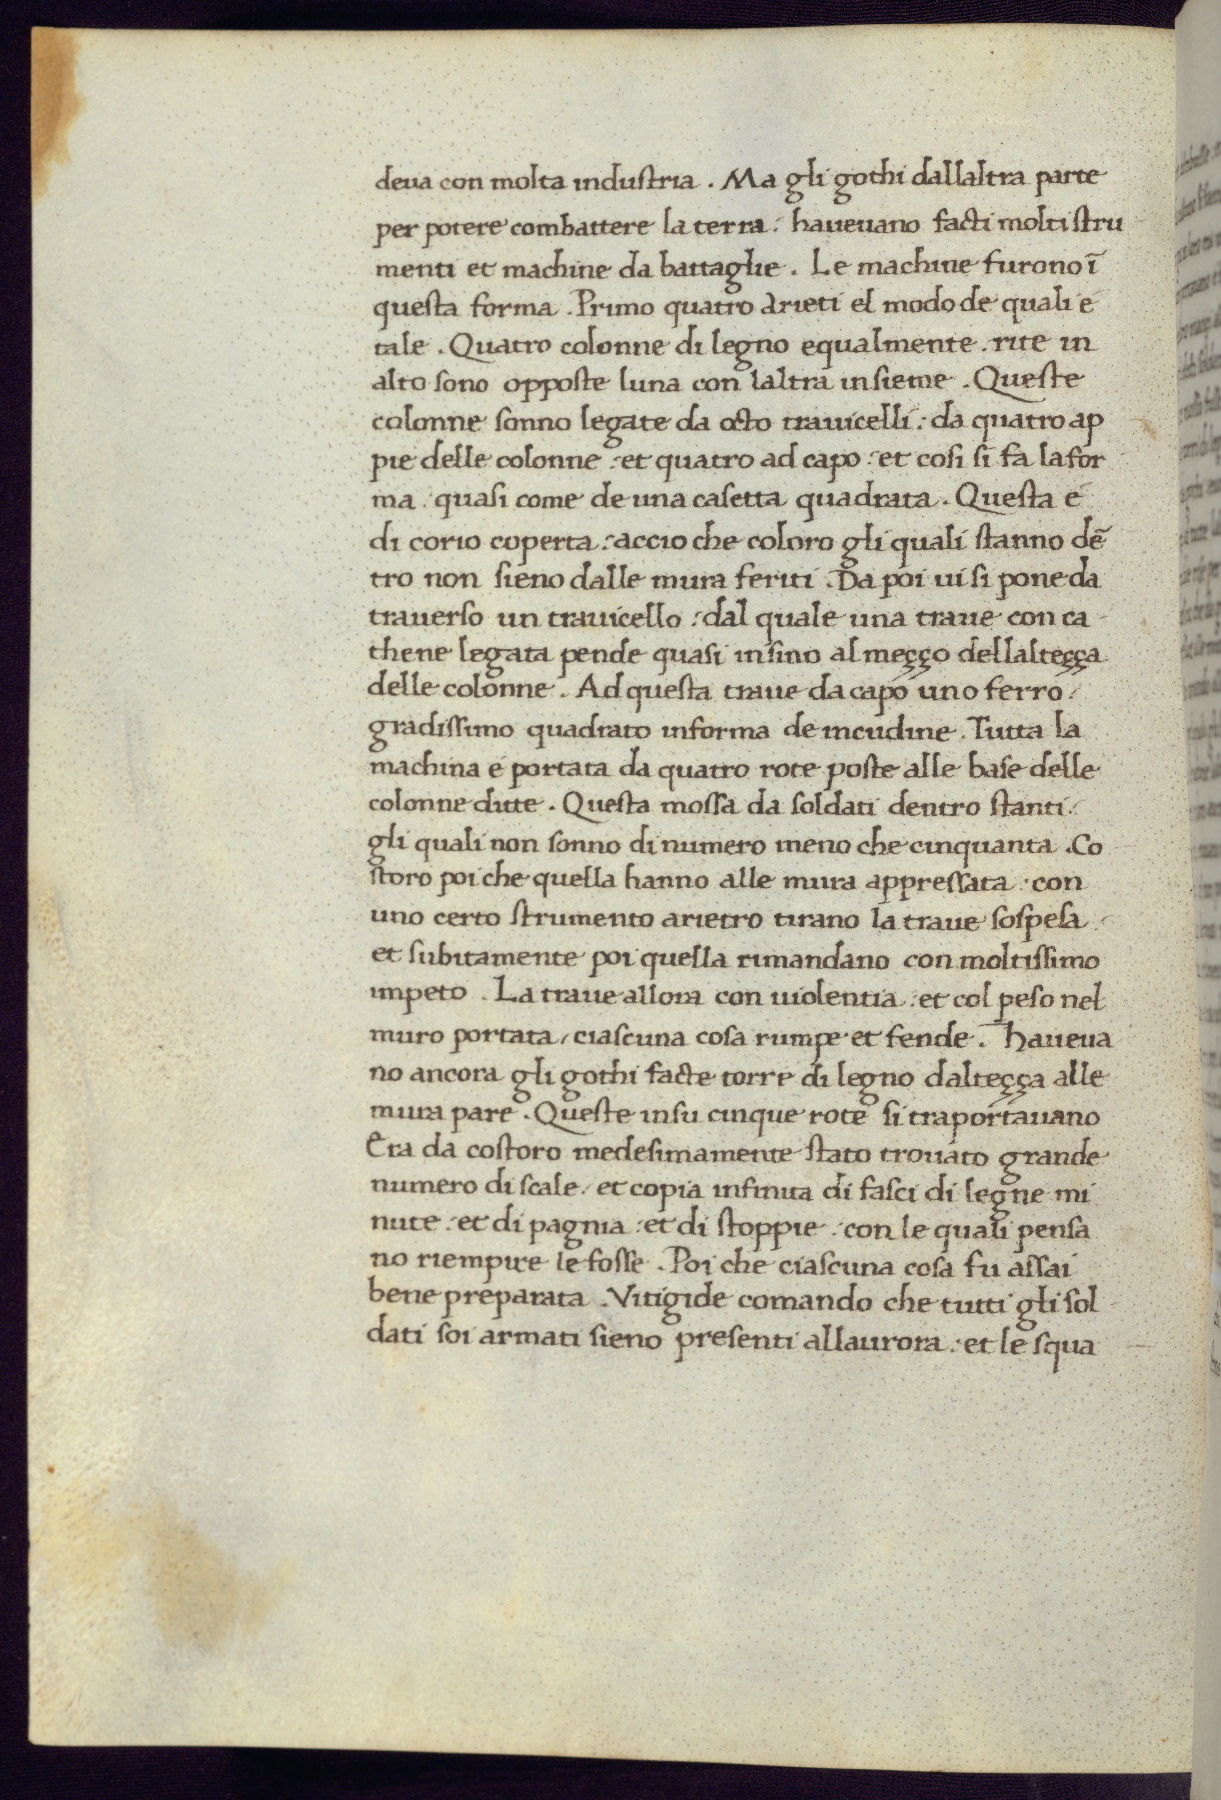 deua con molta industria . Ma gli gothi dallaltra parte
per potere combattere la terra : haueuano facti molti stru
menti et machine da battaglie . Le machine furono ĩ
questa forma . Primo quatro arieti el modo de quali e
tale . Quatro colonne di legno equalmente rite in
alto sono opposte luna con laltra insieme . Queste
colonne sonno legate da octo trauicelli : da quatro ap
pie delle colonne : et quatro ad capo : et cosi si fa la for
ma quasi come de una casetta quadrata . Questa e
di corio coperta : accio che coloro gli quali stanno dẽ
tro non sieno dalle mura feriti . Da poi ui si pone da
trauerso un trauicello : dal quale una traue con ca
thene legata pende quasi insino al meçço dellalteçça
delle colonne . Ad questa traue da capo uno ferro /
gradissimo quadrato in forma de incudine . Tutta la
machina e portata da quatro rote poste alle base delle
colonne ditte . Questa mossa da soldati dentro stanti /
gli quali non sonno di numero meno che cinquanta . Co
storo poi che quella hanno alle mura appressata : con
uno certo strumento arietro tirano la traue sospesa /
et subitamente poi quella rimandano con moltissimo
impeto . La traue allora con uiolentia : et col peso nel
muro portata / ciascuna cosa rumpe et fende . Haueua
no ancora gli gothi facte torre di legno dalteçça alle
mura pare . Queste insu cinque rote si traportauano
Era da costoro medesimamente stato trouato grande
numero di scale / et copia infinita di fasci di legne mi
nute : et di pagnia : et di stoppie : con le quali pensa
no riempire le fosse . Poi che ciascuna cosa fu assai
bene preparata . Vitigide comando che tutti gli sol
dati soi armati sieno presenti allaurora : et le squa